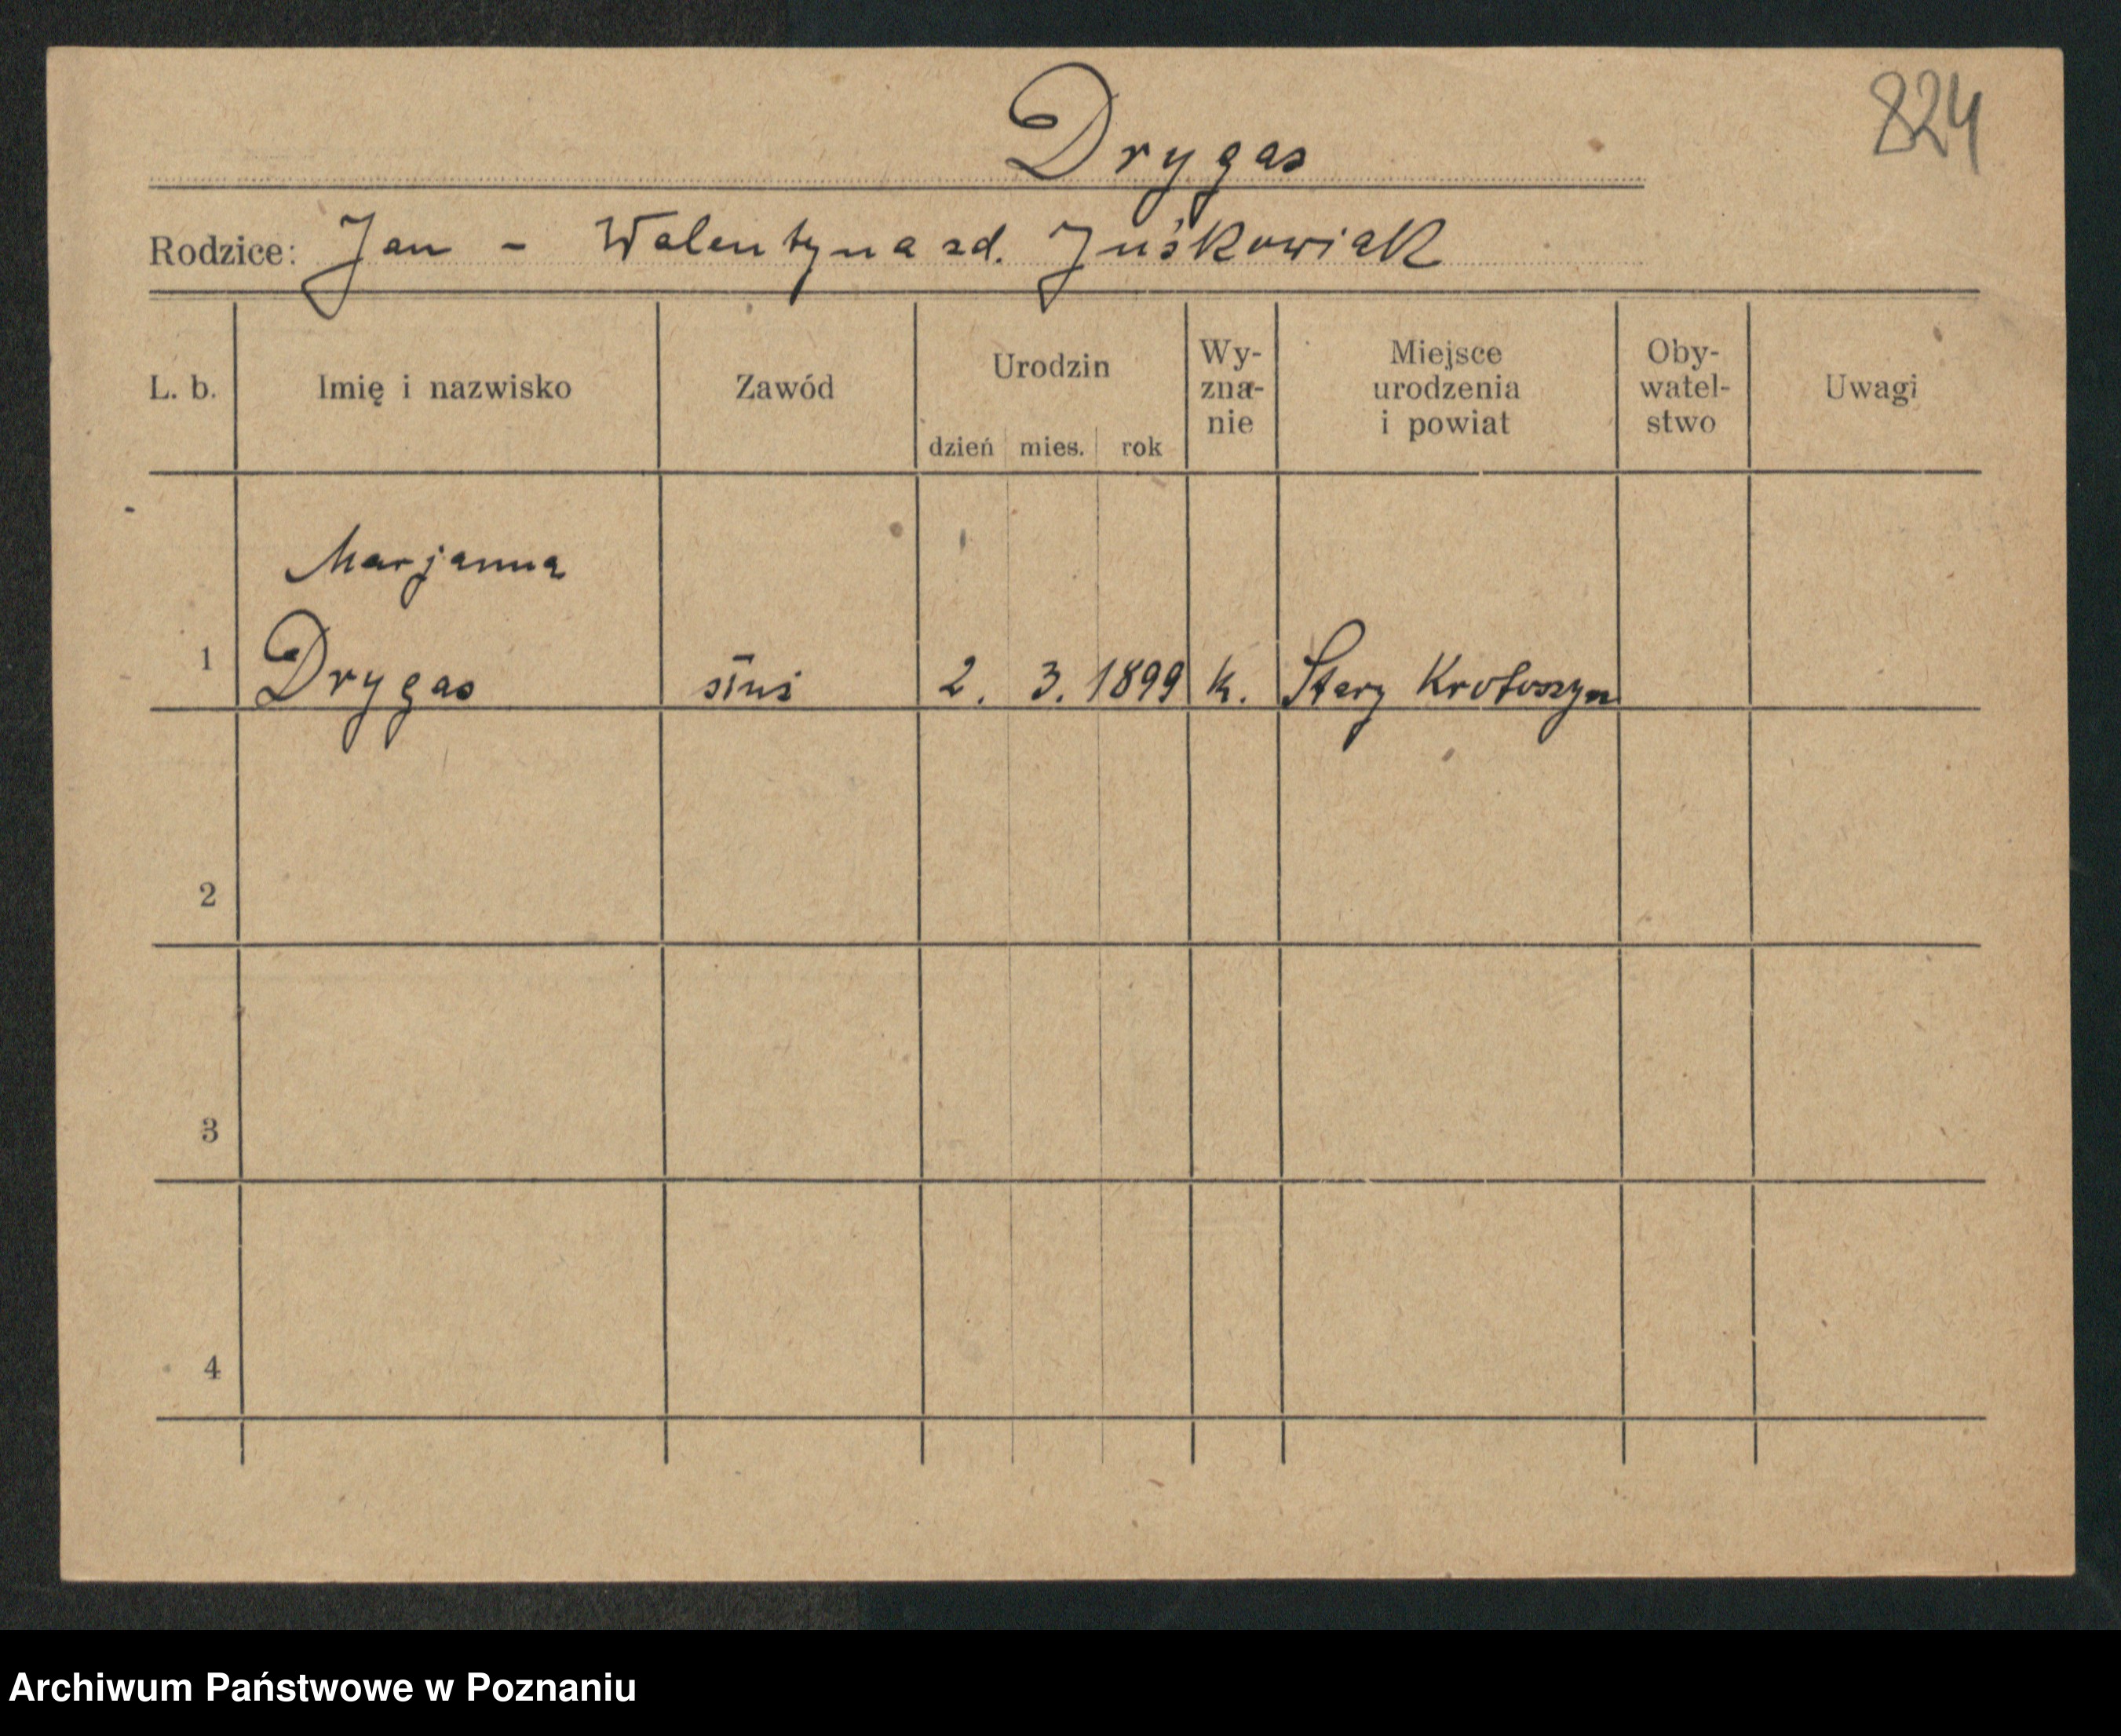 824
Drygas
Rodzice: Jan - Walentyna zd. Juśkowiak
L. b. Imię i nazwisko Zawód Urodzin dzień mies. rok Wy-zna-nie Miejsce urodzenia i powiat Oby-watel-stwo Uwagi
Marjanna
1 Drygas 2. 3. 1899 k. Stary Krotoszyn
2
3
4
Archiwum Państwowe w Poznaniu